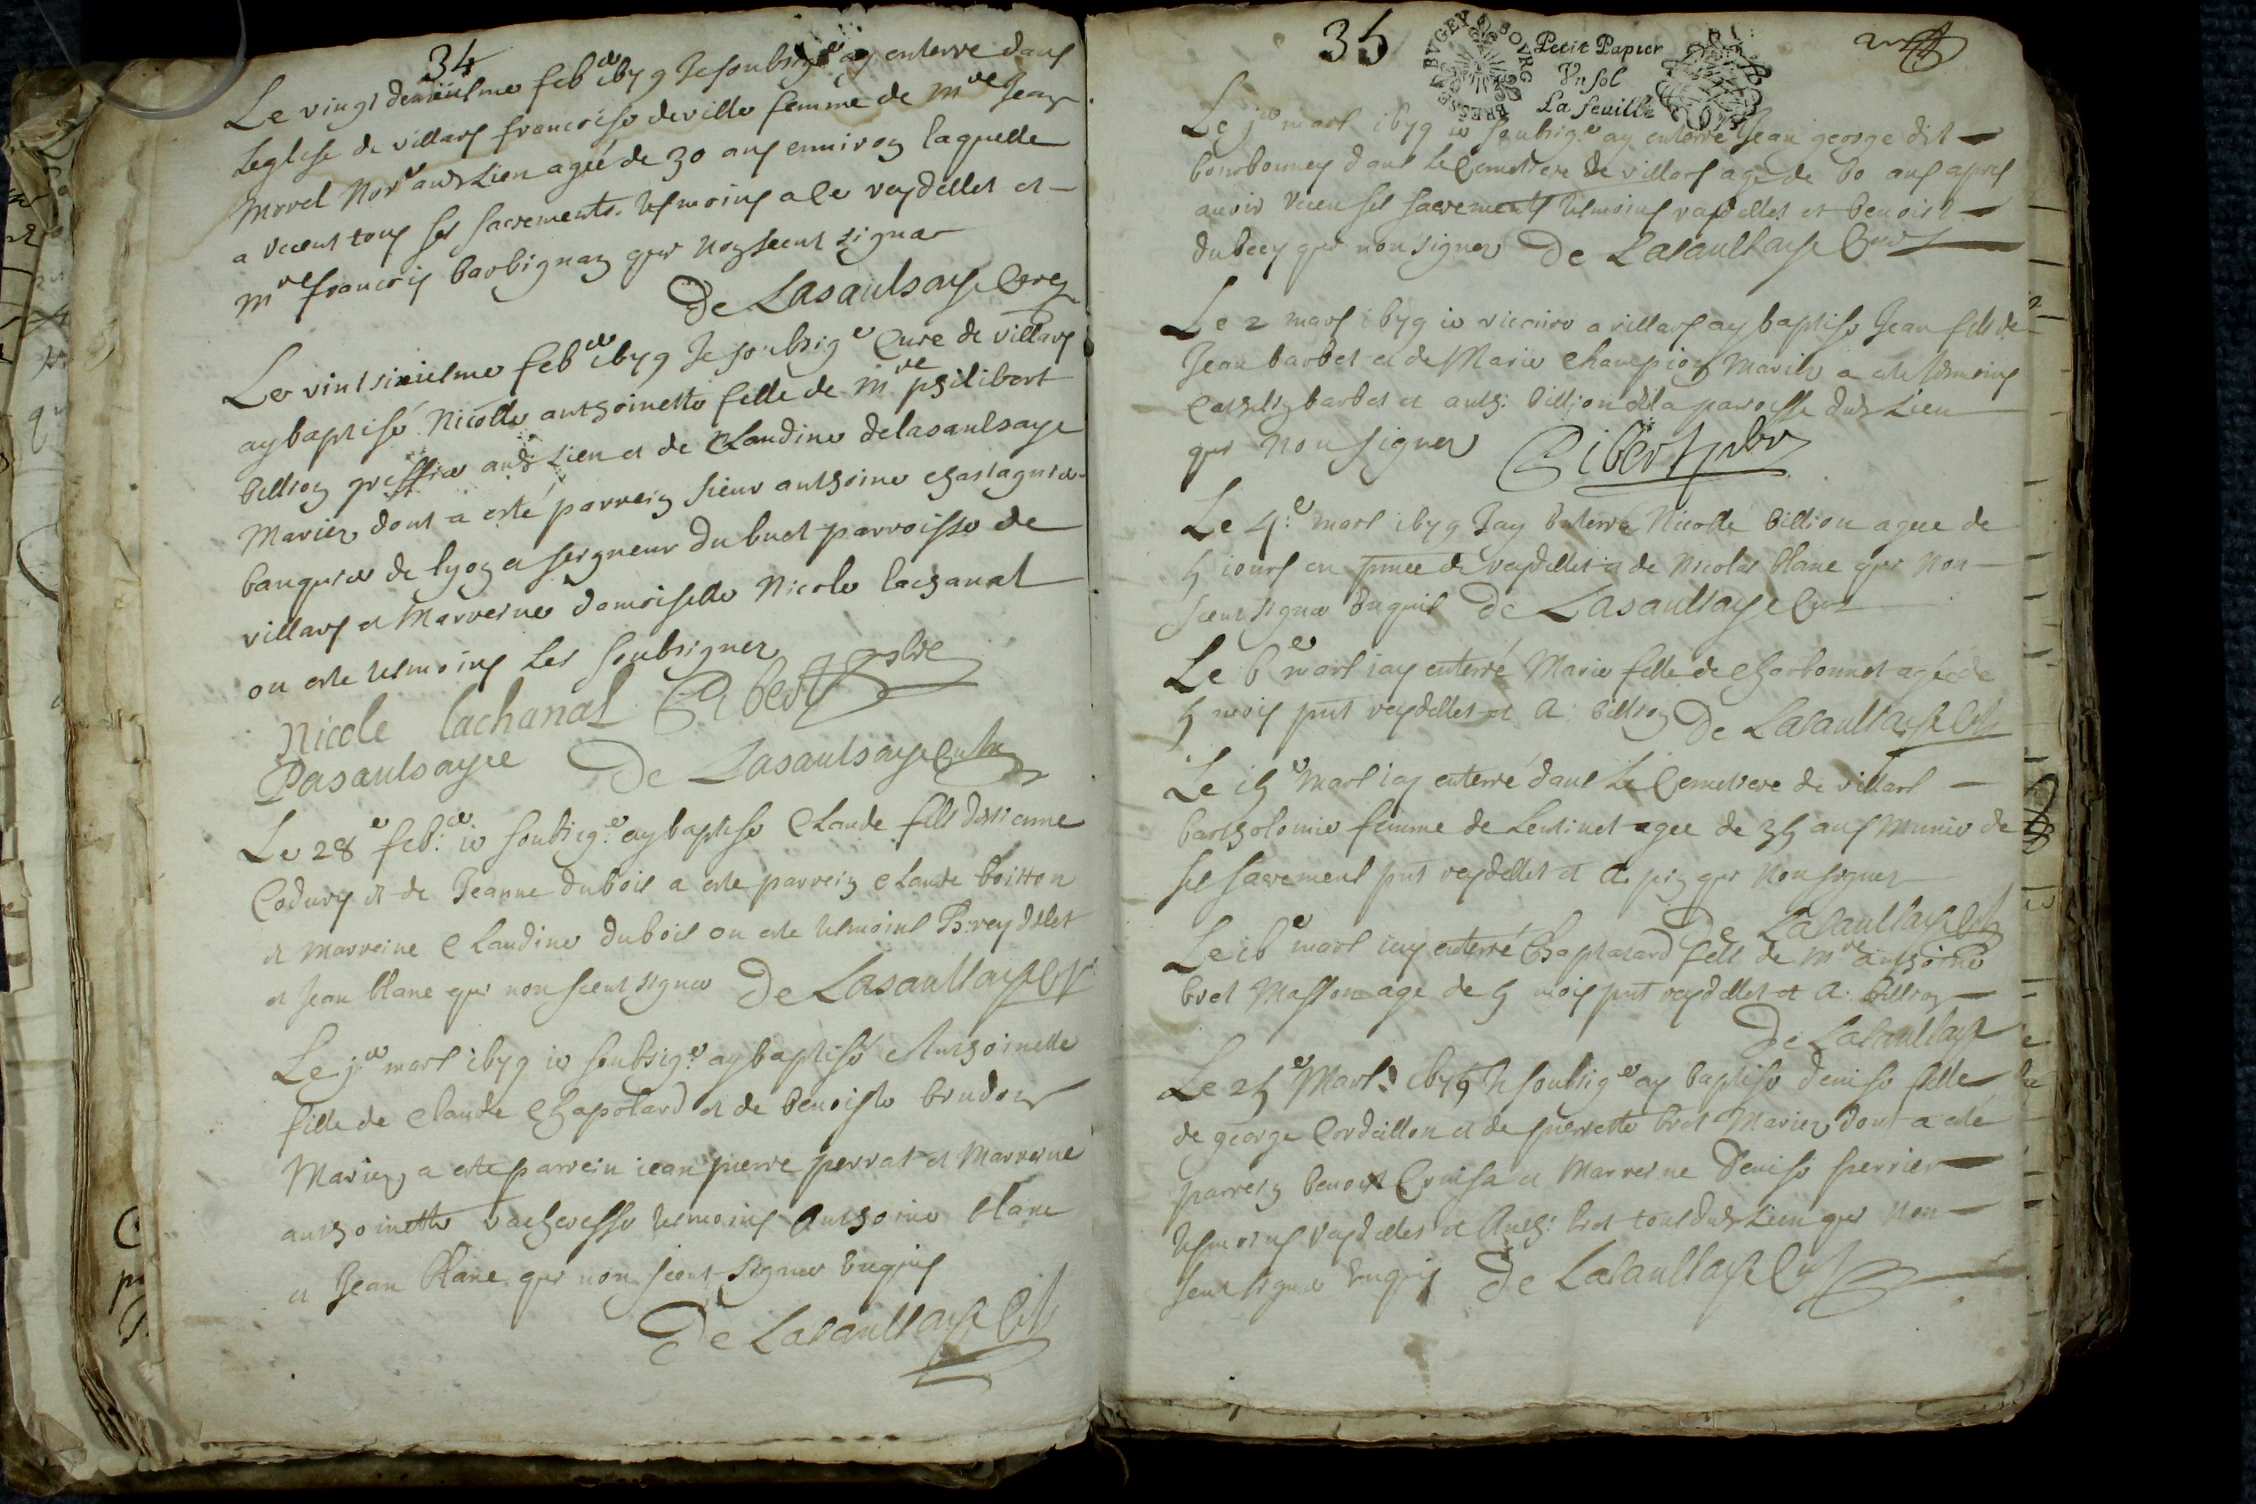 34
Le vingt deuxiesme feb er 1679 Je soubsigé ay enterré dans
leglise de villars francoise deville femme de Mre Jean
Morel Nore audt Lieu agée de 30 ans environ laquelle
a receut tous ses sacrements. tesmoins a Ce reydellet et
Mre francois barbignan qui nosceut signer
De Lasaulsaye Curé
Le vintsixiesme feb er 1679 Je soubsigé Curé de villars
ay baptisé Nicolle anthoinette fille de Mre philibert
billion greffier audt Lieu et de Claudine delasaulsaye
Mariez, dont a esté parrein sieur anthoine chastagnier
banquier de lyon et seigneur du buet parroisse de
villars et Marreine damoiselle Nicole lachanal
on este tesmoins les soubsignez
Nicole lachanal Gibert pbre
Lasaulsaye De Lasaulsaye Curé
Le 28e feb: er ie soubsigé ay baptisé Claude fils destienne
Codury et de Jeanne dubois a este parrein Claude boitton
et marreine Claudine dubois on este tesmoins B: reydellet
et Jean blanc qui non sceut signer De Lasaulsaye Cur
Le j er mars 1679 ie soubsigé ay baptisé Anthoinette
fille de Claude Chapolard et de benoiste brudon
Mariez, a este parrein iean pierre perrat et Marreine
anthoinette vacheresse tesmoins Anthoine blanc
et Jean blanc qui non sceut signer enquis
De Lasaulsaye Cur
35
BRESSE BVGEY BOVRG
Petit Papier
Vn sol
La feuille
Le j er mars 1679 ie soubsigé ay enterré Jean george dit
bourbonney dans le Cemetiere de villars agé de 60 ans apres
avoir receu ses sacrements tesmoins reydellet et benoist
dubecy qui non signez De Lasaulsaye Curé
Le 2 mars 1679 ie vicaire a villars ay baptisé Jean fils de
Jean barbet et de Marie Champion Mariez a este tesmoins
Cathelin barbet et anth: billion dela paroisse dudt Lieu
qui Non signez Gibert pbre
Le 4e mars 1679 Jay Enterré Nicolle billion agee de
5 iours en pnce de reydellet et de Nicolas blanc qui Non
sceut signer Enquis De Lasaulsaye Curé
Le 6e mars iay enterré Marie fille de Charbonnet agée de
5 mois pnt reydellet et A: billion De Lasaulsaye Cur
Le 15e Mars iay enterré dans le Cemetiere de villars
bartholomie femme de Lentinet agee de 35 ans Munie de
ses sacrements pnt reydellet et A. pin qui Non signez
De Lasaulsaye Cur
Le 16e mars iay enterré Chaphatard fils de Mre anthoine
bret Masson agé de 5 mois pnt reydellet et A: billion
De Lasaulsaye
Le 25e Mars: 1679 Je soubsigé ay baptisé denise fille
de george Cordeillon et de pierrette bret Mariez, dont a esté
parrein benoist Cruisa et Marreine denise perrier
tesmoins reydellet et Anth: bret tous dudt Lieu qui Non
sceut signer Enquis De Lasaulsaye Cur